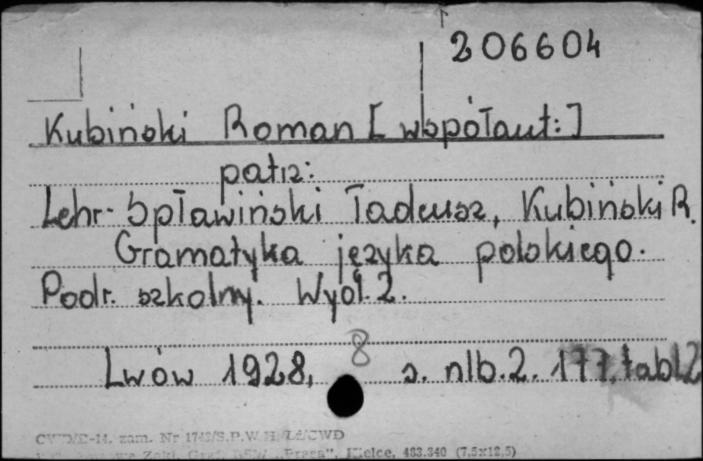 206604
Kubiński Roman [współaut:]
patrz:
Lehr-Spławiński Tadeusz, Kubiński R.
Gramatyka języka polskiego.
Podr. szkolny. Wyd. 2.
8
Lwów 1928, s. nlb. 2. 177, tabl. 2
zam. Nr S.P.W.
"Prasa", Kielce, 483.340 (7,5x12,5)